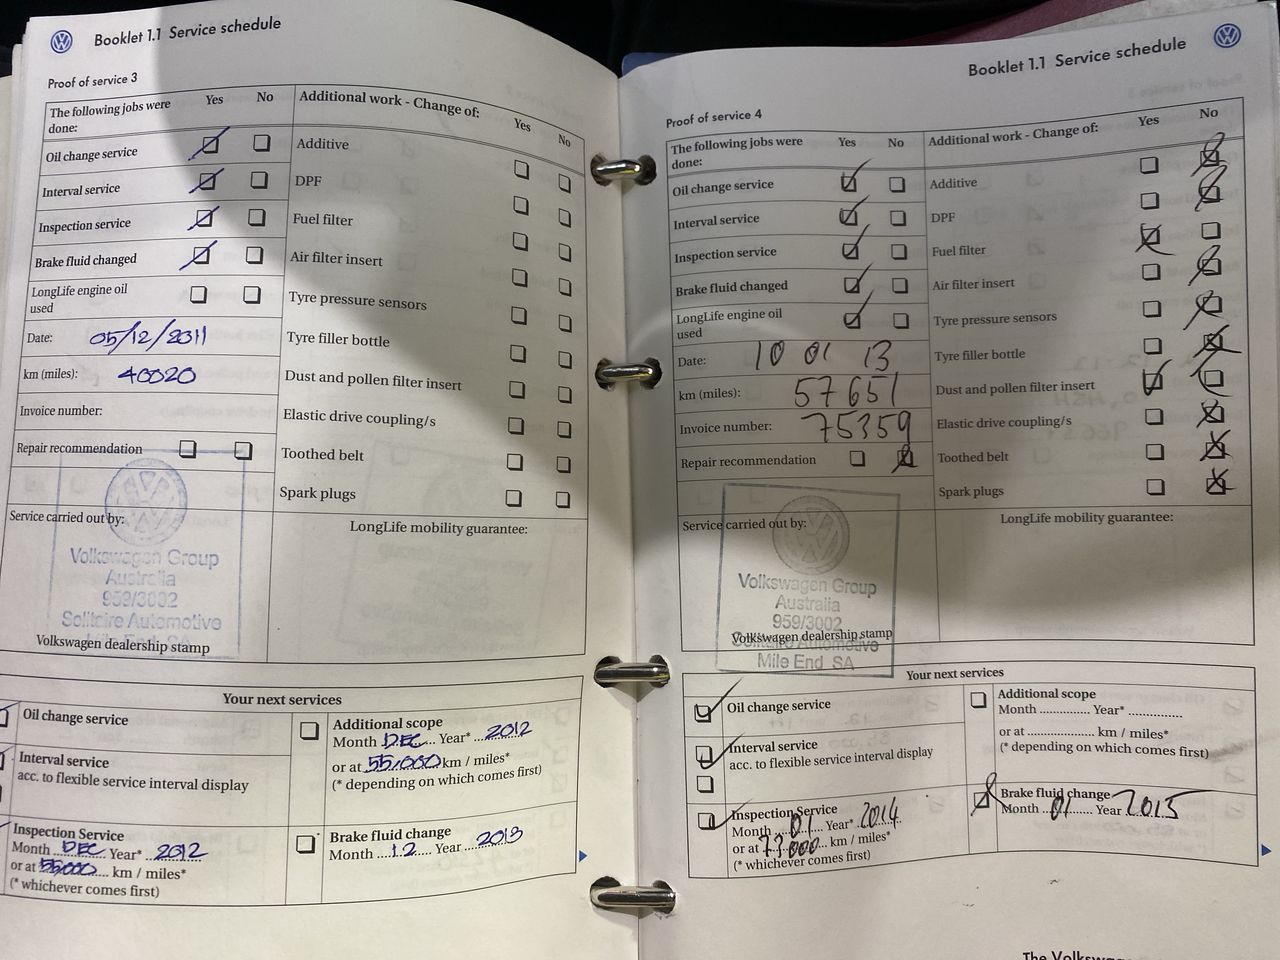 Booklet 1.1 Service schedule
Proof of service 3
The following jobs were done: Yes No
Oil change service
Interval service
Inspection service
Brake fluid changed
LongLife engine oil used
Date: 05/12/2011
km (miles): 40020
Invoice number:
Repair recommendation
Service carried out by:
Volkswagen Group
Australia
959/3002
Solitaire Automotive
Mile End SA
Volkswagen dealership stamp
Additional work - Change of: Yes No
Additive
DPF
Fuel filter
Air filter insert
Tyre pressure sensors
Tyre filler bottle
Dust and pollen filter insert
Elastic drive coupling/s
Toothed belt
Spark plugs
LongLife mobility guarantee:
Your next services
Oil change service
Interval service
acc. to flexible service interval display
Inspection Service
Month DEC Year* 2012
or at 55,000 km / miles*
(* whichever comes first)
Additional scope
Month DEC Year* 2012
or at 55,000 km / miles*
(* depending on which comes first)
Brake fluid change
Month 12 Year 2013
Booklet 1.1 Service schedule
Proof of service 4
The following jobs were done: Yes No
Oil change service
Interval service
Inspection service
Brake fluid changed
LongLife engine oil used
Date: 10 01 13
km (miles): 57651
Invoice number: 75359
Repair recommendation
Service carried out by:
Volkswagen Group
Australia
959/3002
Solitaire Automotive
Mile End SA
Volkswagen dealership stamp
Additional work - Change of: Yes No
Additive
DPF
Fuel filter
Air filter insert
Tyre pressure sensors
Tyre filler bottle
Dust and pollen filter insert
Elastic drive coupling/s
Toothed belt
Spark plugs
LongLife mobility guarantee:
Your next services
Oil change service
Interval service
acc. to flexible service interval display
Inspection Service
Month 01 Year* 2014
or at 73000 km / miles*
(* whichever comes first)
Additional scope
Month .............. Year* ...............
or at ................... km / miles*
(* depending on which comes first)
Brake fluid change
Month 01 Year 2015